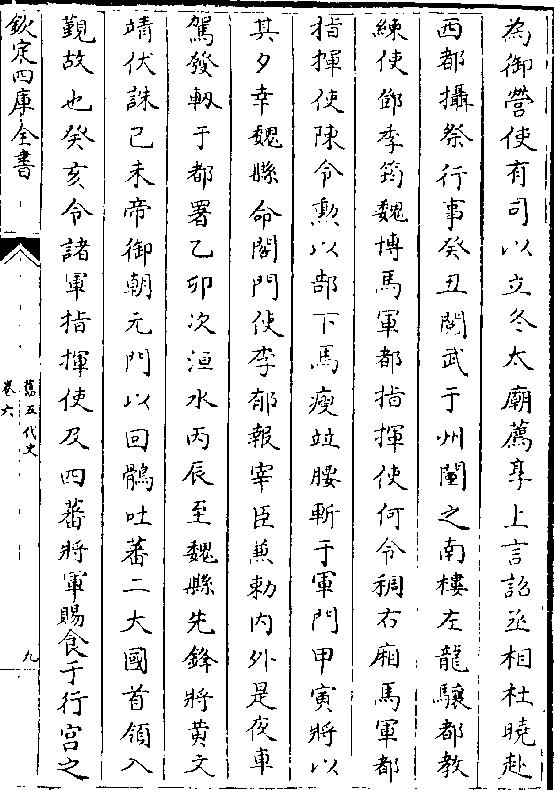 為御營使有司以立冬太廟薦享上言詔丞相杜曉赴
西都攝祭行事癸丑閱武于州闉之南樓左龍驤都教
練使鄧季筠魏博馬軍都指揮使何令稠右廂馬軍都
指揮使陳令勲以部下馬瘦竝腰斬于軍門甲寅將以
其夕幸魏縣命閤門使李郁報宰臣兼勅内外是夜車
駕發軔于都署乙卯次洹水丙辰至魏縣先鋒將黄文
靖伏誅己未帝御朝元門以回鶻吐蕃二大國首領入
覲故也癸亥令諸軍指揮使及四蕃將軍賜食于行宫之
欽定四庫全書
舊五代史
卷六
九